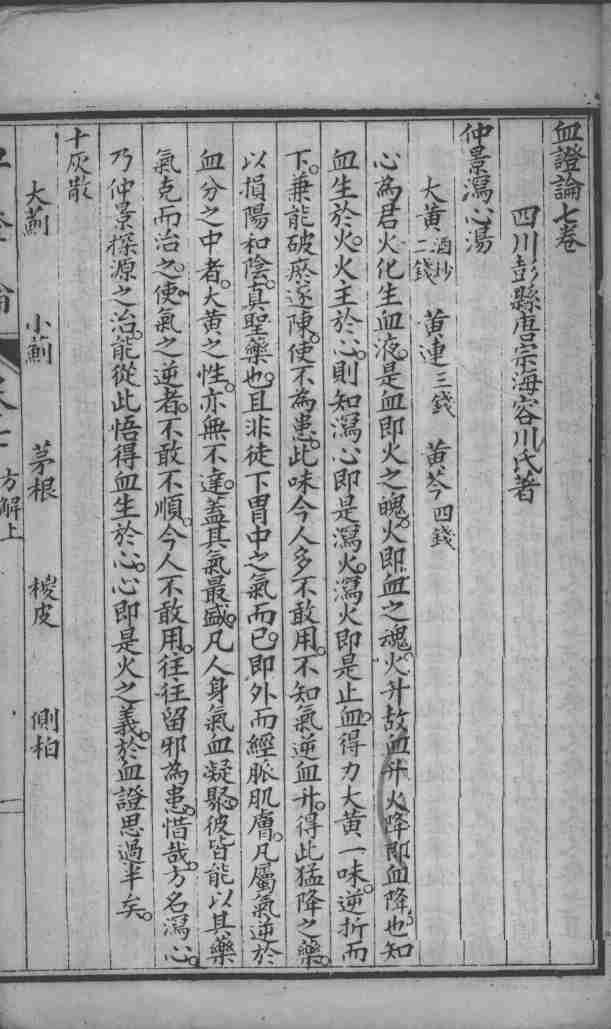 血證論七卷
四川彭縣唐宗海容川氏著
仲景瀉心湯
大黃酒抄二錢 黃連三錢 黃芩四錢
心為君火化生血液。是血即火之魄。火即血之魂。火升故血升火降即血降也。知
血生於火。火主於心。則知瀉心即是瀉火。瀉火即是止血。得力大黃一味。逆折而
下。兼能破瘀逐陳。使不為患。此味今人多不敢用。不知氣逆血升。得此猛降之藥。
以損陽和陰。真聖藥也。且非徒下胃中之氣而已。即外而經脈肌膚。凡屬氣逆於
血分之中者。大黃之性。亦無不達。蓋其氣最盛。凡人身氣血凝聚。彼皆能以其藥
氣克而治之。使氣之逆者。不敢不順。今人不敢用。往往留邪為患。惜哉。方名瀉心。
乃仲景探源之治。能從此悟得血生於心。心即是火之義。於血證思過半矣。
十灰散
大薊 小薊 茅根 椶皮 側柏
方解上